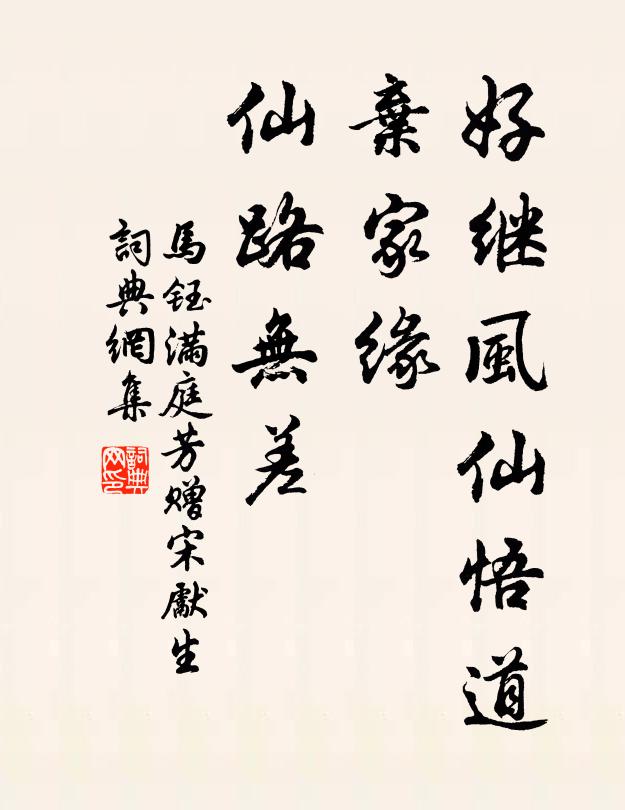 好继風仙悟道
棄家緣
仙路無差
馬鈺满庭芳赠宋獻生
詞典網集
詞典网印